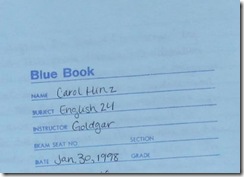 Blue Book
NAME Carol Hinz
SUBJECT English 24
INSTRUCTOR Goldgar
EXAM SEAT NO. SECTION
DATE Jan. 30, 1998 GRADE